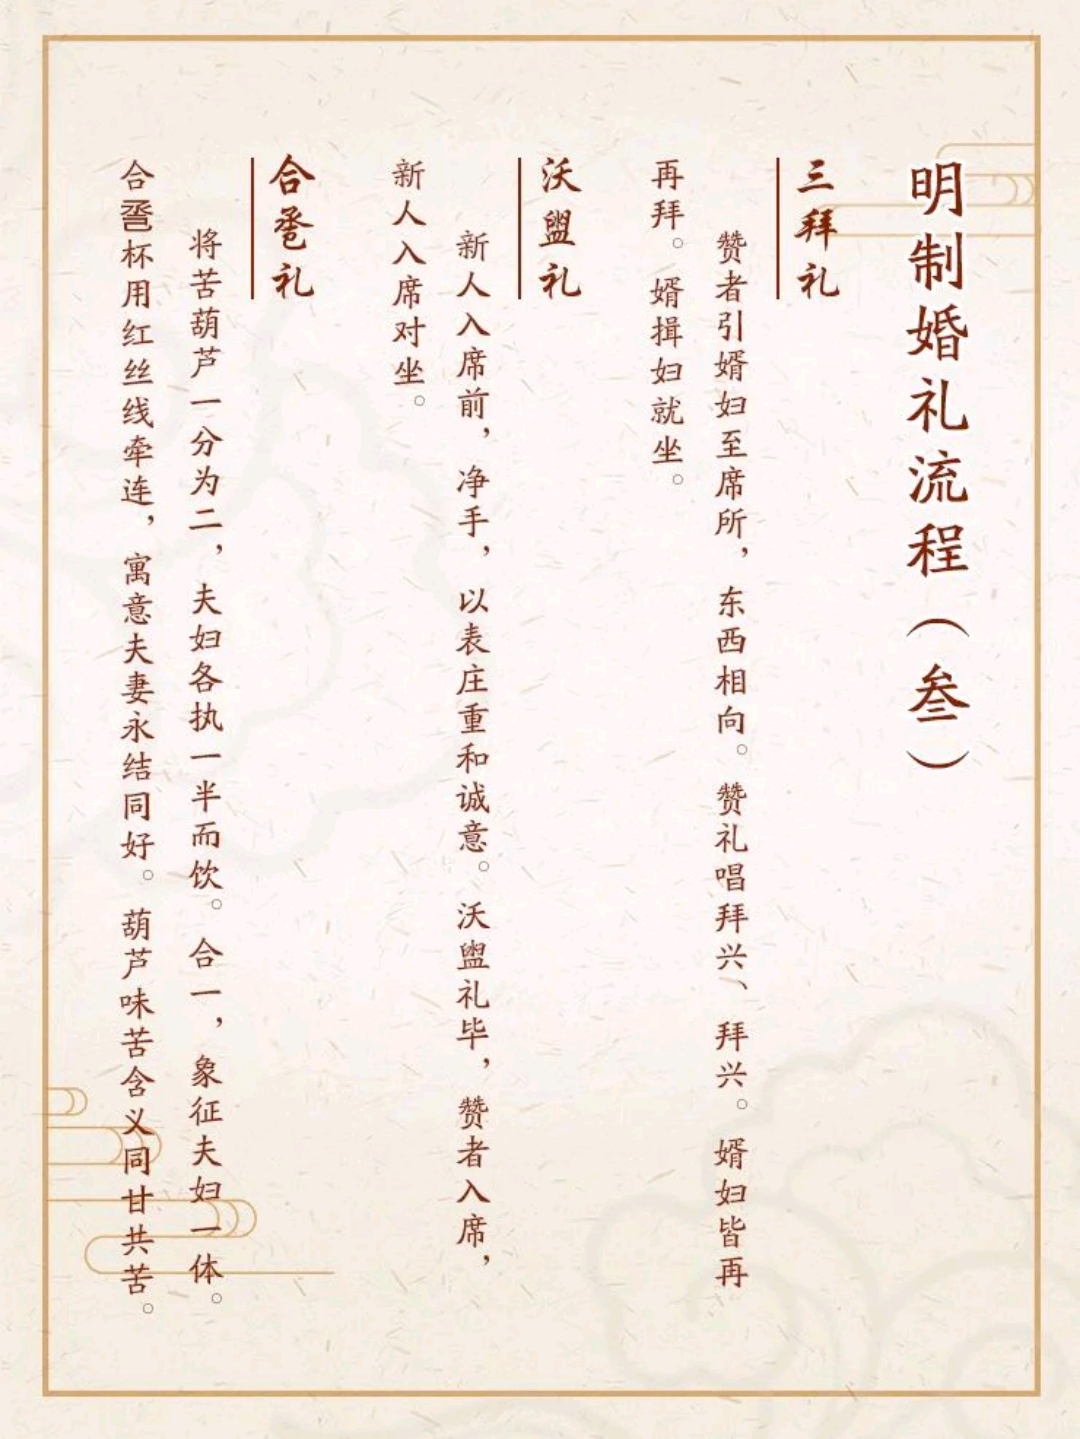 明制婚礼流程（叁）
三拜礼
赞者引婿妇至席所，东西相向。赞礼唱拜兴、拜兴。婿妇皆再
再拜。婿揖妇就坐。
沃盥礼
新人入席前，净手，以表庄重和诚意。沃盥礼毕，赞者入席，
新人入席对坐。
合卺礼
将苦葫芦一分为二，夫妇各执一半而饮。合一，象征夫妇一体。
合卺杯用红丝线牵连，寓意夫妻永结同好。葫芦味苦含义同甘共苦。